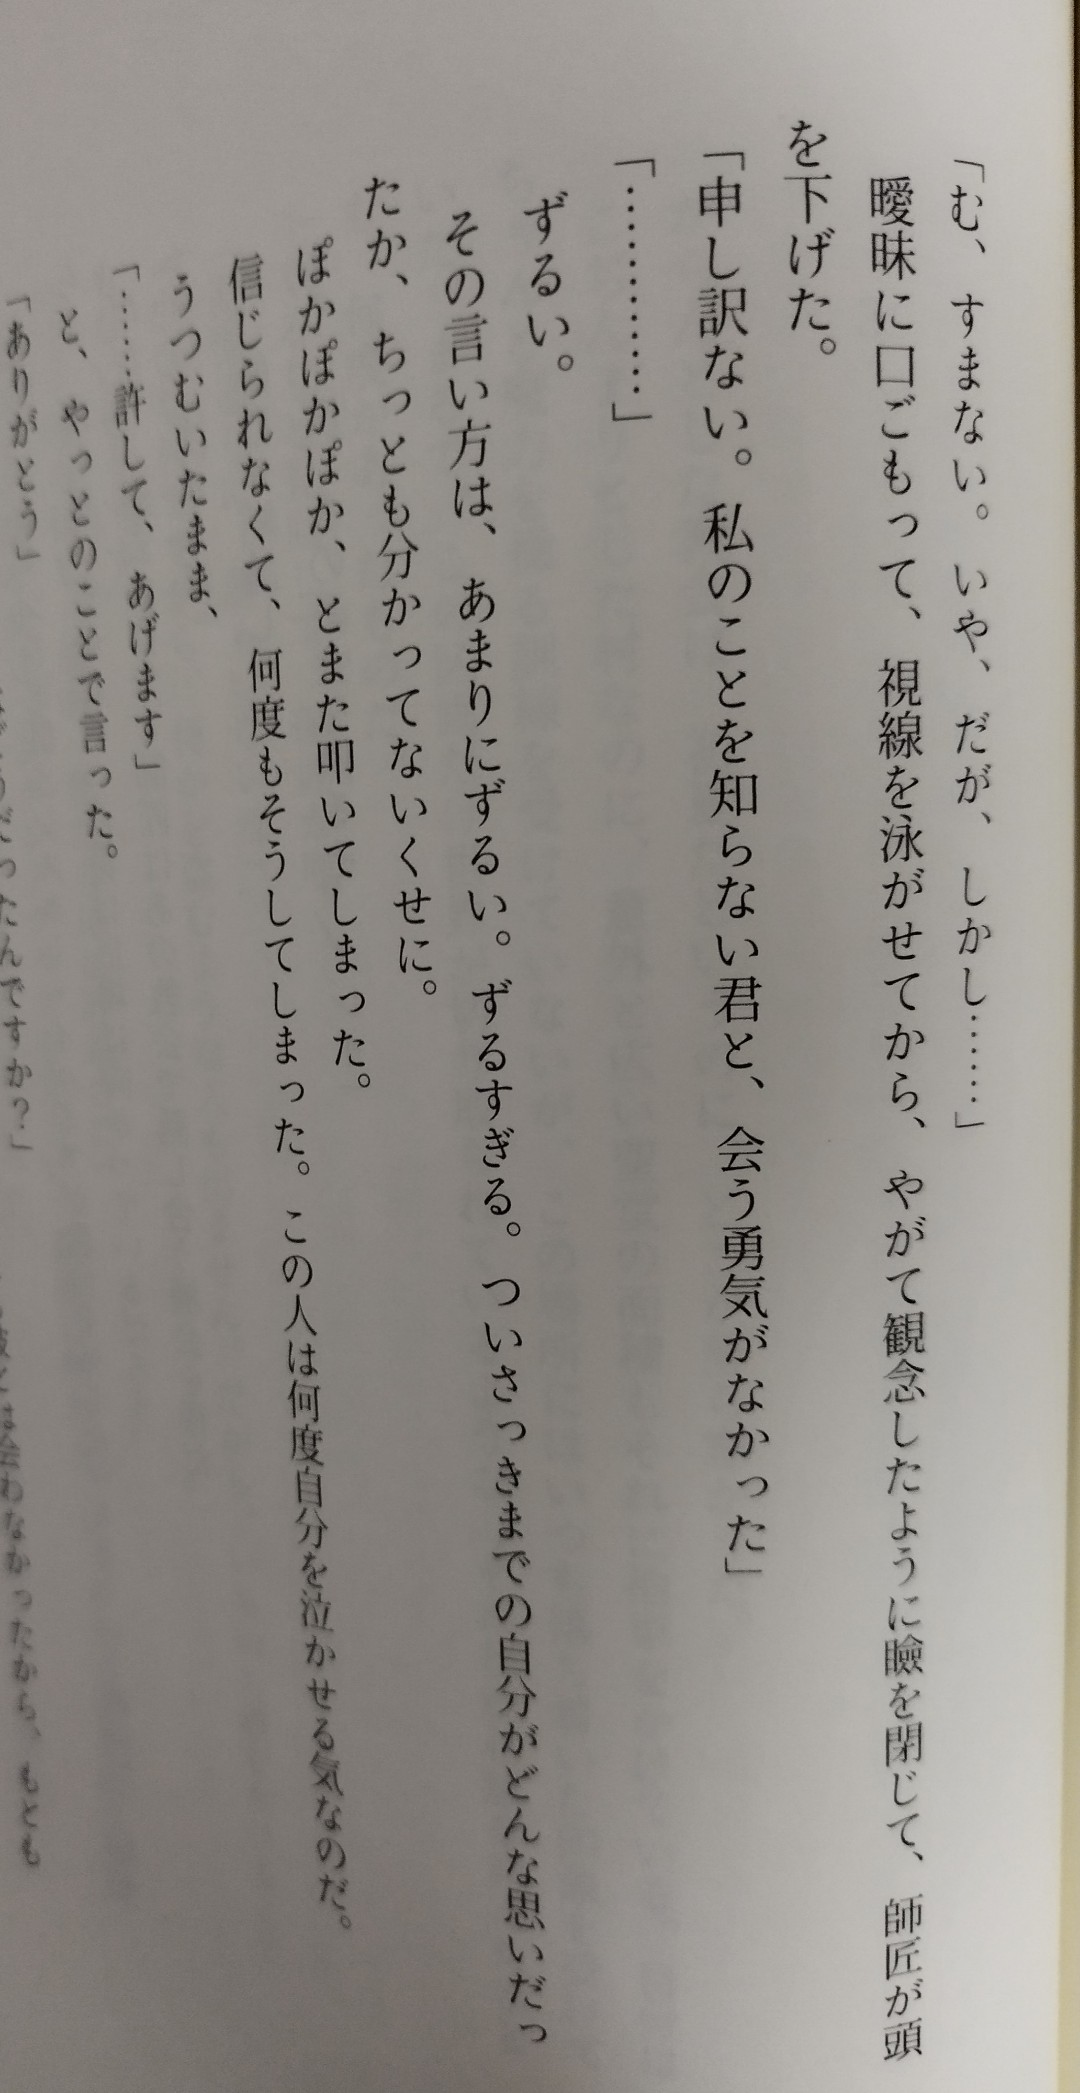 「む、すまない。いや、だが、しかし……」
曖昧に口ごもって、視線を泳がせてから、やがて観念したように瞼を閉じて、師匠が頭
を下げた。
「申し訳ない。私のことを知らない君と、会う勇気がなかった」
「…………」
ずるい。
その言い方は、あまりにずるい。ずるすぎる。ついさっきまでの自分がどんな思いだっ
たか、ちっとも分かってないくせに。
ぽかぽかぽか、とまた叩いてしまった。
信じられなくて、何度もそうしてしまった。この人は何度自分を泣かせる気なのだ。
うつむいたまま、
「……許して、あげます」
と、やっとのことで言った。
「ありがとう」
だったんですか？」
とは会わなかったから、もとも